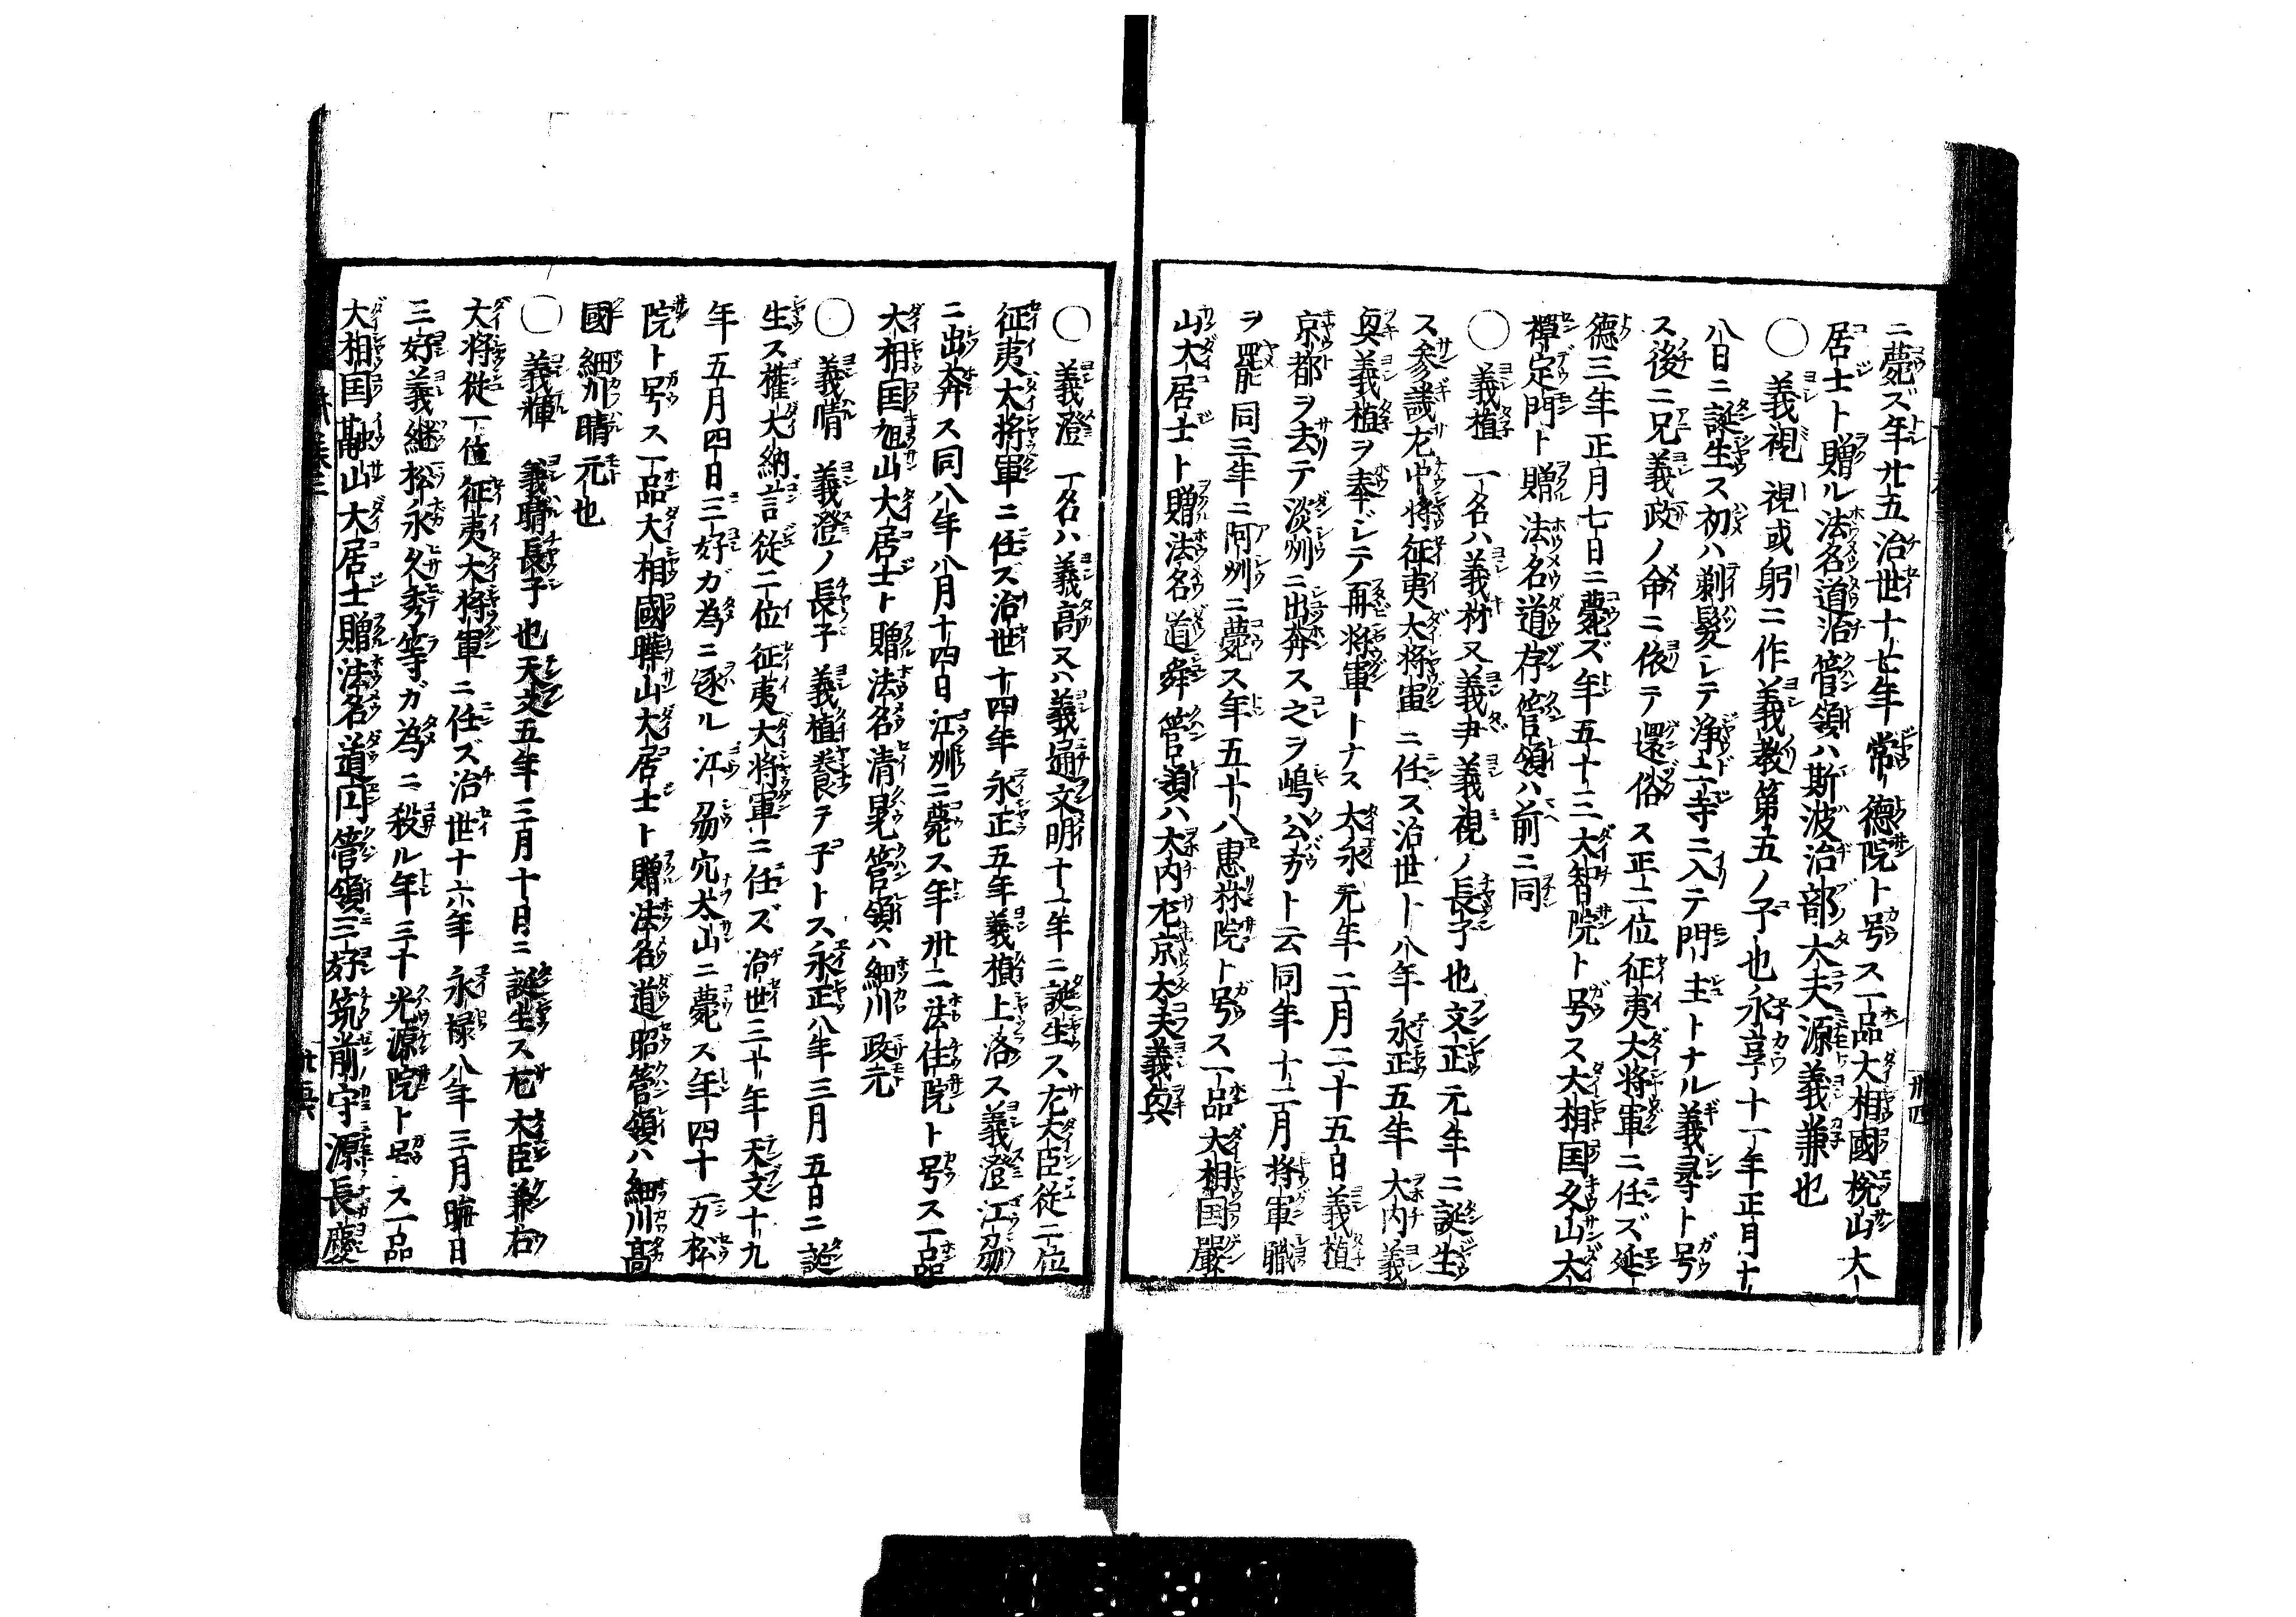 ニ薨ズ年廿五治世十七年常徳院ト号ス一品大相國悦山大
居士ト贈ル法名道治管領ハ斯波治部大夫源義兼也
〇義視 視或躬ニ作義教第五ノ子也永享十一年正月十
八日ニ誕生ス初ハ剃髪シテ浄土寺ニ入テ門主トナル義尋ト号
ス後ニ兄義政ノ命ニ依テ還俗ス正二位征夷大将軍ニ任ズ延
徳三年正月七日ニ薨ズ年五十三大智院ト号ス大相国久山大
禅定門ト贈法名道存管領ハ前ニ同
〇義植 一名ハ義材又義尹義視ノ長子也文正元年ニ誕生
ス参議左中将征夷大将軍ニ任ス治世十八年永正五年大内義
奥義植ヲ奉ジテ再将軍トナス大永元年二月二十五日義植
京都ヲ去テ淡州ニ出奔ス之ヲ嶋公方ト云同年十二月将軍職
ヲ罷同三年ニ阿州ニ薨ス年五十八恵林院ト号ス一品大相国嚴
山大居士ト贈法名道舜管領ハ大内左京大夫義奥
〇義澄 一名ハ義高又ハ義通文明十一年ニ誕生ス左大臣従二位
征夷大将軍ニ任ス治世十四年永正五年義植上洛ス義澄江刕
ニ出奔ス同八年八月十四日江州ニ薨ス年卅二法住院ト号ス一品
大相国旭山大居士ト贈法名清晃管領ハ細川政元
〇義晴 義澄ノ長子義植養ヲ子トス永正八年三月五日ニ誕
生ス権大納言従二位征夷大将軍ニ任ズ治世三十年天文十九
年五月四日三好ガ為ニ逐ル江刕穴太山ニ薨ス年四十一万松
院ト号ス一品大相國曄山大居士ト贈法名道昭管領ハ細川高
國細川晴元也
〇義輝 義晴長子也天文五年三月十日ニ誕生ス左大臣兼右
大将従一位征夷大将軍ニ任ズ治世十六年永禄八年三月晦日
三好義継松永久秀等ガ為ニ殺ル年三十光源院ト号ス一品
大相国融山大居士贈法名道円管領三好筑前守源長慶
卅四